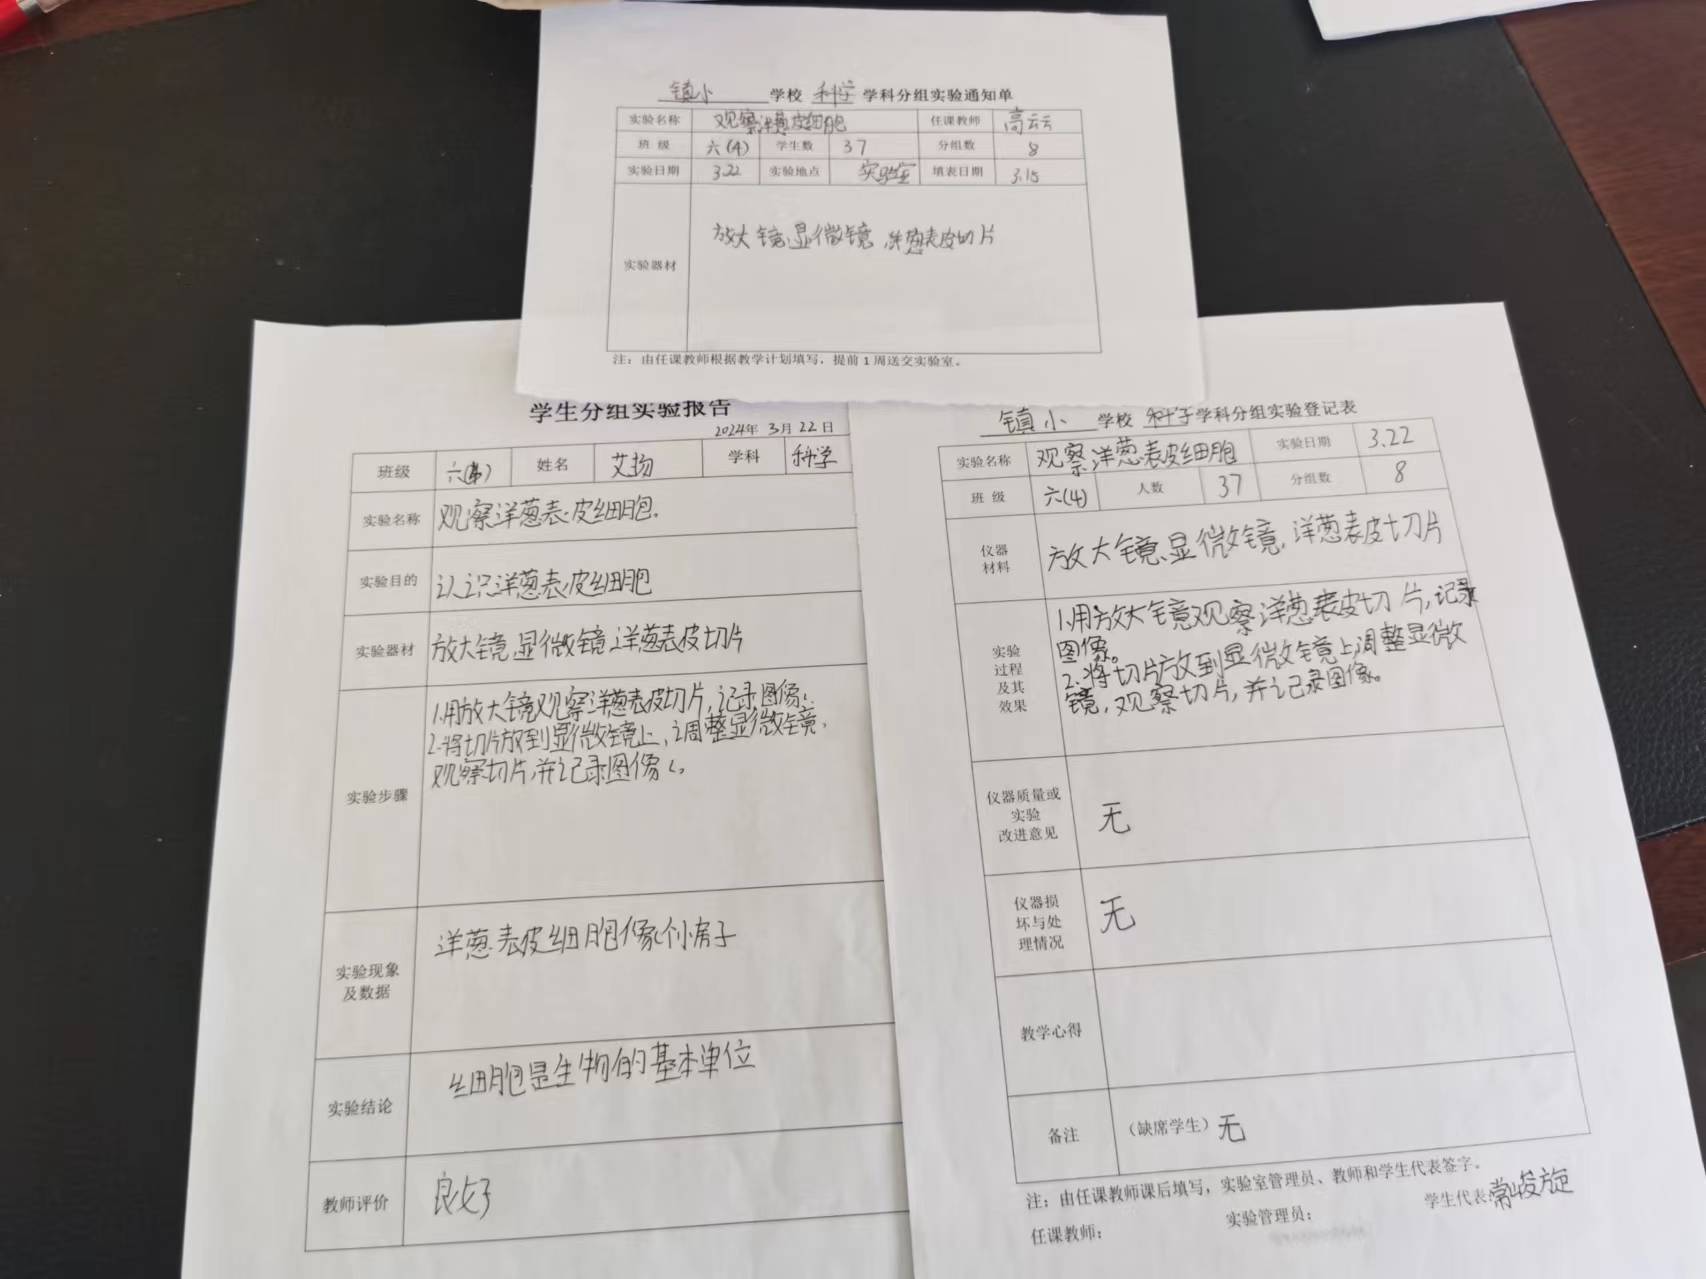 镇小 学校 科学 学科分组实验通知单
实验名称 观察洋葱表皮细胞 任课教师 高云
班 级 六(4) 学生数 37 分组数 8
实验日期 3.22 实验地点 实验室 填表日期 3.15
实验器材 放大镜、显微镜、洋葱表皮切片
注：由任课教师根据教学计划填写，提前1周送交实验室。
学生分组实验报告
2024年 3月 22日
班级 姓名 艾扬 学科 科学
实验名称 观察洋葱表皮细胞.
实验目的 认识洋葱表皮细胞
实验器材 放大镜、显微镜、洋葱表皮切片
实验步骤
1.用放大镜观察洋葱表皮切片,记录图像;
2.将切片放到显微镜上,调整显微镜,
观察切片,并记录图像。
实验现象
及数据
洋葱表皮细胞像个小房子
实验结论 细胞是生物的基本单位
教师评价 良好
镇小 学校 科学 学科分组实验登记表
实验名称 观察洋葱表皮细胞 实验日期 3.22
班 级 六(4) 人数 37 分组数 8
仪器
材料
放大镜、显微镜,洋葱表皮切片
实验
过程
及其
效果
1.用放大镜观察洋葱表皮切片,记录
图像。
2.将切片放到显微镜上,调整显微
镜,观察切片,并记录图像。
仪器质量或
实验
改进意见
无
仪器损
坏与处
理情况
无
教学心得
备注 （缺席学生）无
注：由任课教师课后填写，实验室管理员、教师和学生代表签字。
任课教师： 实验管理员： 学生代表：常峻旋